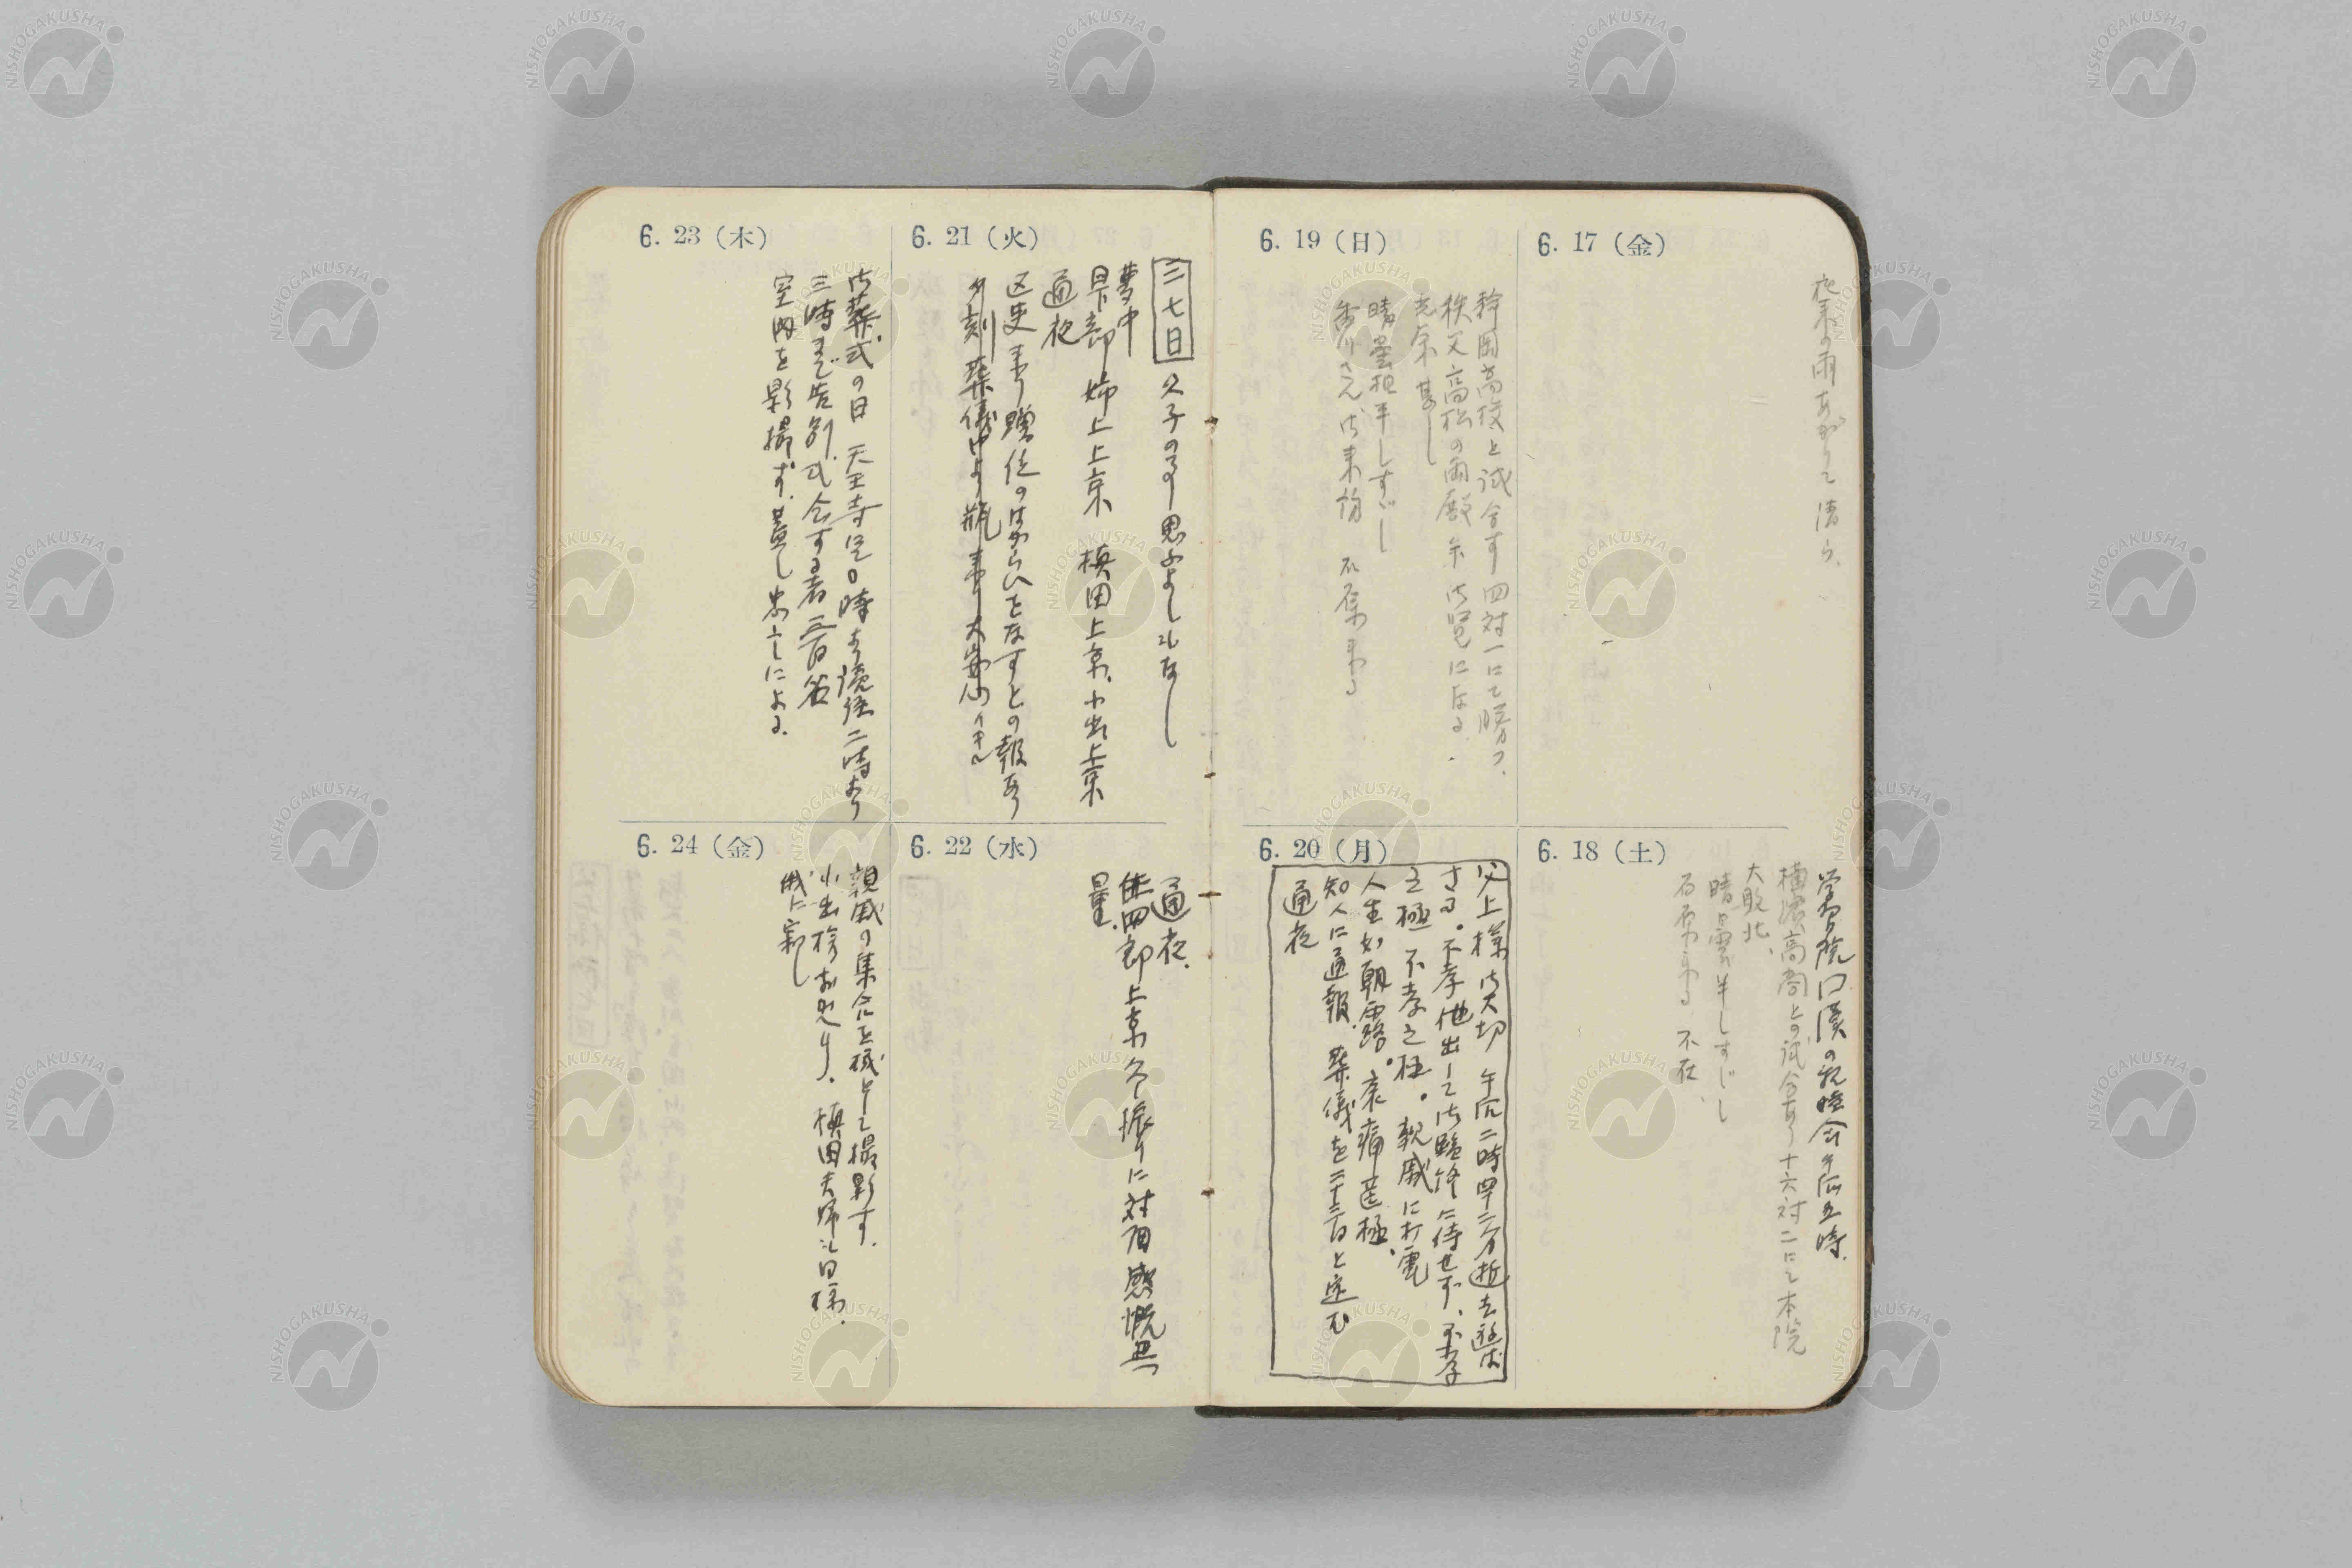 6. 17（金）
夜来の雨あがりて清ら、
6. 18（土）
学習院 の親睦会 午后五時、
横濱高商との試合あり十六対二にて本院
大敗北、
晴曇半しすじし
石原来る 不在、
6. 19（日）
静岡高校と試合す四対一にて勝つ、
秩父高松の両殿下御覧になる、
晴曇相半しすゞし
香川さん御来訪 石原来る
6. 20（月）
父上様御大切 午后二時四十二分逝去遊ば
さる。不孝他出して御臨終に侍せず、不孝
之極 不孝之極。親戚に打電
人生如朝露。哀痛 極、
知人に通報、葬儀を二十三日と定む
通夜
6. 21（火）
三七日 久子の事思ふよしもなし
夢中
日下部姉上上京 槙田上京、小出上京
通夜
区吏来り贈位のはからひをなすとの報あり
夕刻葬儀 より瓶来り大 イキル
6. 22（水）
通夜、
四郎上京久振りに対面感慨無
量、
6. 23（木）
御葬式の日 天王寺に〇時より読経二時より
三時まで告別式会する者 百名
室内を影撮す、蓋し忠言による、
6. 24（金）
親戚の集合を機として撮影す、
小出様お帰り、槙田夫婦も同様、
俄に寂し